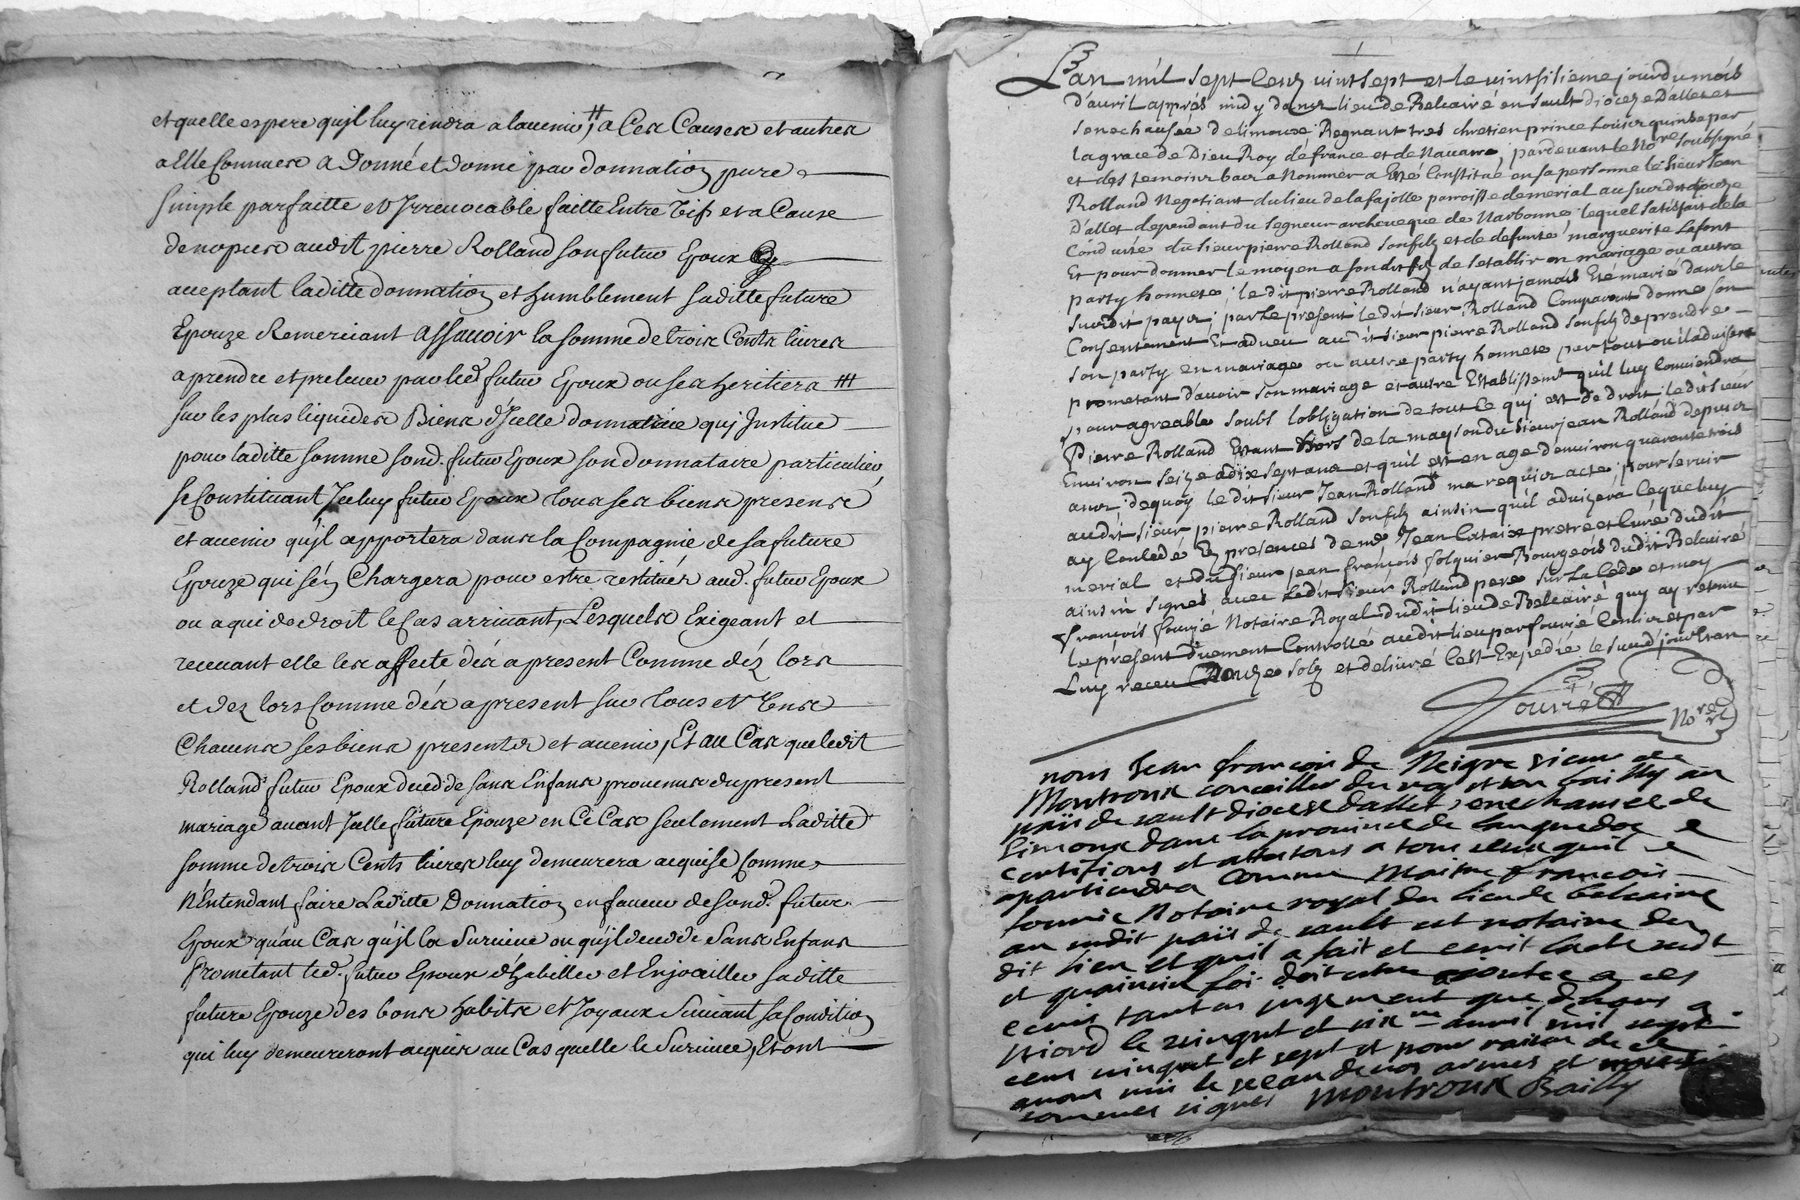 et quelle espere qujl luy rendra a lauenir, a Ces Causes et autres
a Elle Connues a Donné et donne par donnation pure
simple parfaitte et Irreuocable faitte Entre vifs et a Cause
de nopces audit pierre Rolland son futur Epoux
acceptant laditte donnation et humblement saditte future
Epouze Remerciant assauoir la somme de trois Cents liures
a prendre et preleuer par led futur Epoux ou ses heritiers
sur les plus liquides Biens d'Jcelle donnatrice quj Jnstitue
pour laditte somme sond. futur Epoux son donnataire particulier,
se Constituant Jceluy futur Epoux tous ses biens presens
et auenir qujl apportera dans la Compagnie de sa future
Epouze qui s'en Chargera pour estre restitués aud. futur Epoux
ou a qui de droit le Cas arriuant, Lesquels Exigeant et
receuant elle les affecte dés a present Comme déz lors
et dez lors Comme dés a present sur tous et Uns
Chacuns ses biens presents et auenir, Et au Cas que ledit
Rolland futur Epoux decedde sans Enfans prouenus du present
mariage auant Jcelle future Epouze en Ce Cas seulement Laditte
somme de trois Cents liures luy demeurera acquise Comme
N'Entendant faire Laditte Donnation en faueur de sond. futur
Epoux qu'au Cas qujl la Suruiue ou qujl decedde Sans Enfans
Prometant led. futur Epoux d'habiller et Enjoailler saditte
future Epouze des bons habits et Joyaux Suiuant sa Condition
qui luy demeureront acquis au Cas quelle le Suruiue, Et ont
L'an mil sept Cens vint sept et le vint sisieme jour du mois
d'auril apprés midy dans lieu de Belcaire en sault dioceze d'allet et
senechausée de limoux Regnant tres chretien prince Louis quinse par
la grace de Dieu Roy de france et de Nauarre, pardeuant le No.re soubsigné
et des temoins bas a Nommer a Eté Constitué en sa personne le sieur Jean
Rolland Negotiant du lieu de lafajolle paroisse de merial au susdit dioceze
d'allet dependant du segneur archeueque de Narbonne, lequel satisfait de la
Conduite du sieur pierre Rolland son filz et de defunte marguerite Lafont
Et pour donner le moyen a son dit filz de s'etablir en mariage ou autre
party honnete, le dit pierre Rolland n'ayant jamais Eté marié dans le
susdit pays, par le present le dit sieur Rolland Comparant donne son
Consentement Et adueu au dit sieur pierre Rolland son filz de prendre
son party en mariage ou autre party honnete par tout ou il aduisera
prometant d'auoir son mariage et autre Establissem.t qu'il luy Conuiendra
pour agreable soubs l'obligation de tout ce quj est de droit le dit sieur
Pierre Rolland Estant hors de la mayson du sieur jean Rolland depuis
Enuiron seize a dix sept ans et qu'il est en age d'enuiron quarante trois
ans, de quoy le dit sieur Jean Rolland ma requis acte, pour seruir
audit sieur pierre Rolland son filz ainsin qu'il aduizera Ce que luy
ay Concedé Ez presences de m.e Jean Cataixe pretre et Curé dudit
merial et du sieur jean françois folquier Bourgeois dudit Belcaire
ainsin signés auec ledit sieur Rolland pere sur la Cede et moy
françois fourié Notaire Royal dudit lieu de Belcaire quy ay retenu
le present duement Controllée audit lieu par fourié Commis et par
Luy receu Douze solz et deliuré Cest Expedié le susd jour et an
fourié
No.re
nous Jean françois de Neigre sieur de
Montroux conseiller du roy et son bailly au
païs de sault diocese dallet senechausee de
Limoux dans la prouince de languedoc
certifions et attestons a tous ceux quil
apartiendra comme Maitre françois
fourie Notaire royal du lieu de belcaire
au susdit païs de sault est notaire du
dit lieu et quil a fait et ecrit lacte susd.t
et quainsin foi doit estre ajoutee a ces
ecris tant en jugement que dehors a
niord le vingnt et six.me auril mil sept
cens vingnt et sept et pour raison de ce
auons mis le sceau de nos armes et nous
sommes signes Montroux Bailly